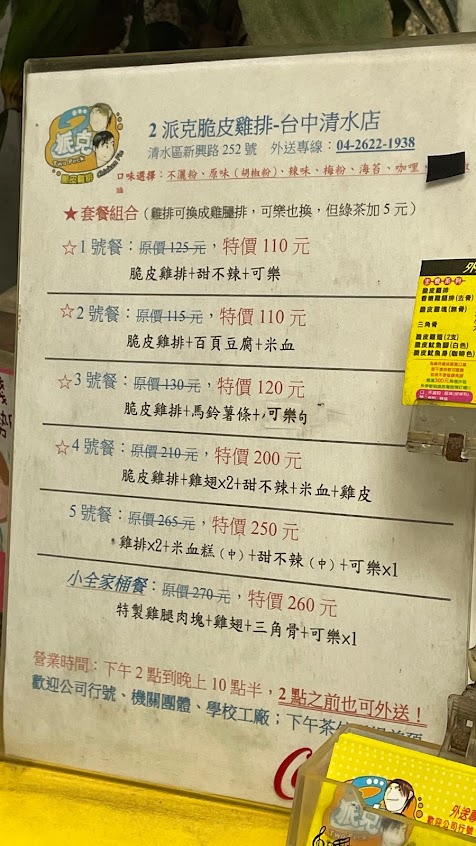 派克
Two Peck
2 派克脆皮雞排-台中清水店
清水區新興路 252 號 外送專線：04-2622-1938
口味選擇：不灑粉、原味（胡椒粉）、辣味、梅粉、海苔、咖哩
★套餐組合（雞排可換成雞腿排，可樂也換，但綠茶加 5 元）
☆1 號餐：原價 125 元，特價 110 元
脆皮雞排+甜不辣+可樂
☆2 號餐：原價 115 元，特價 110 元
脆皮雞排+百頁豆腐+米血
☆3 號餐：原價 130 元，特價 120 元
脆皮雞排+馬鈴薯條+可樂
☆4 號餐：原價 210 元，特價 200 元
脆皮雞排+雞翅x2+甜不辣+米血+雞皮
5 號餐：原價 265 元，特價 250 元
雞排x2+米血糕（中）+甜不辣（中）+可樂x1
小全家桶餐：原價 270 元，特價 260 元
特製雞腿肉塊+雞翅+三角骨+可樂x1
營業時間：下午 2 點到晚上 10 點半，2 點之前也可外送！
歡迎公司行號、機關團體、學校工廠；下午茶
外
脆皮雞排
香嫩雞腿排(去骨)
脆皮雞塊(無骨)
三角骨
脆皮雞翅(2支)
脆皮魷魚腳(白色)
脆皮魷魚身(咖啡色)
派克
外送專
歡迎公司行號